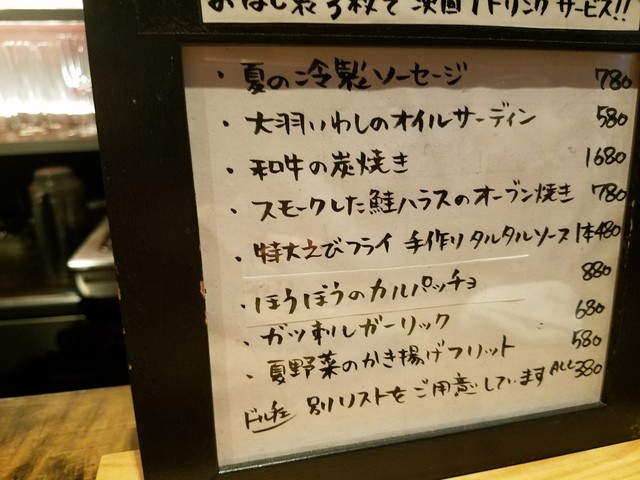 おはし袋3枚で次回1ドリンクサービス!!
・夏の冷製ソーセージ 780
・大羽いわしのオイルサーディン 580
・和牛の炭焼き 1680
・スモークした鮭ハラスのオーブン焼き 780
・特大えびフライ 手作りタルタルソース 1本480
・ほうぼうのカルパッチョ 880
・ガツ刺しガーリック 680
・夏野菜のかき揚げフリット 580
ドルチェ 別リストをご用意しています ALL380